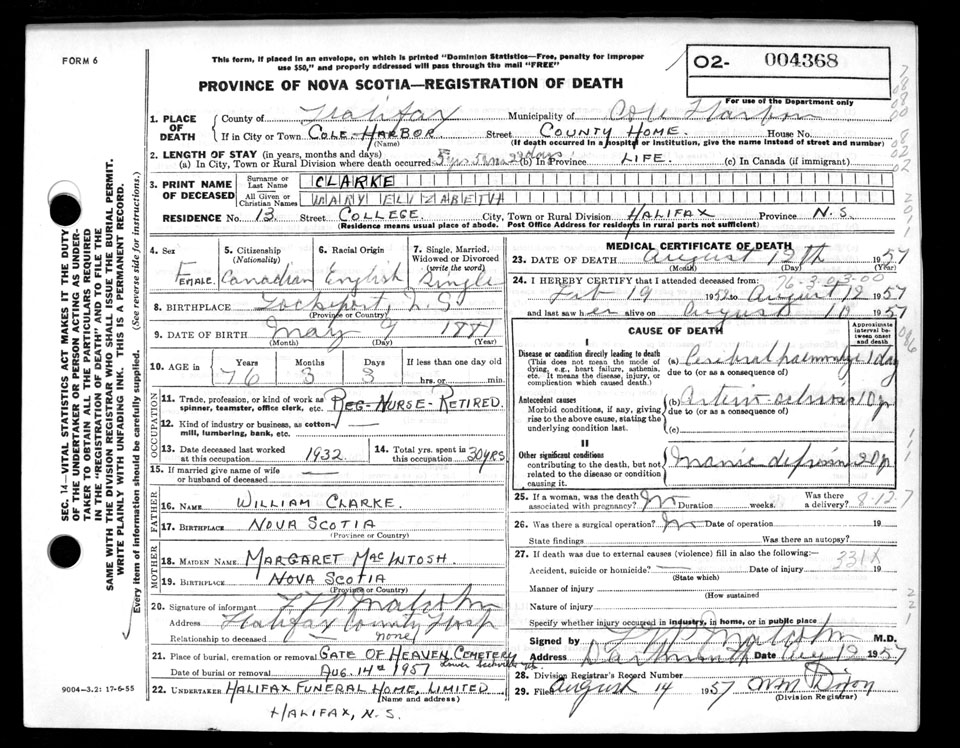 FORM 6
This form, if placed in an envelope, on which is printed "Dominion Statistics—Free, penalty for improper
use $50," and properly addressed will pass through the mail "FREE"
PROVINCE OF NOVA SCOTIA—REGISTRATION OF DEATH
02- 004368
For use of the Department only
1. PLACE OF DEATH
County of Halifax Municipality of Cole Harbour
If in City or Town COLE-HARBOR Street COUNTY HOME. House No.
(Name) (If death occurred in a hospital or institution, give the name instead of street and number)
2. LENGTH OF STAY (in years, months and days)
(a) In City, Town or Rural Division where death occurred 5 yrs 5 m 23 days (b) In Province LIFE. (c) In Canada (if immigrant)
3. PRINT NAME OF DECEASED
Surname or Last Name CLARKE
All Given or Christian Names MARY ELIZABETH
RESIDENCE No. 13. Street COLLEGE. City, Town or Rural Division HALIFAX Province N.S.
(Residence means usual place of abode. Post Office Address for residents in rural parts not sufficient)
4. Sex FEMALE.
5. Citizenship (Nationality) Canadian
6. Racial Origin English
7. Single, Married, Widowed or Divorced (write the word) Single
8. BIRTHPLACE Lockeport, N.S.
(Province or Country)
9. DATE OF BIRTH May 9 1881
(Month) (Day) (Year)
10. AGE in Years Months Days If less than one day old
76 3 3 hrs. or min.
OCCUPATION
11. Trade, profession, or kind of work as
spinner, teamster, office clerk, etc. REG-NURSE-RETIRED.
12. Kind of industry or business, as cotton-
mill, lumbering, bank, etc. —
13. Date deceased last worked
at this occupation 1932
14. Total yrs. spent in
this occupation 30 YRS
15. If married give name of wife
or husband of deceased —
FATHER
16. NAME WILLIAM CLARKE.
17. BIRTHPLACE NOVA SCOTIA
(Province or Country)
MOTHER
18. MAIDEN NAME. MARGARET MACINTOSH
19. BIRTHPLACE NOVA SCOTIA
(Province or Country)
20. Signature of informant Malcolm
Address Halifax County Hosp
Relationship to deceased none
21. Place of burial, cremation or removal GATE OF HEAVEN CEMETERY
Lower Sackville N.S.
Date of burial or removal AUG. 14th 1957
22. UNDERTAKER HALIFAX FUNERAL HOME, LIMITED
(Name and address)
HALIFAX, N.S.
9004—3.2: 17-6-55
MEDICAL CERTIFICATE OF DEATH
23. DATE OF DEATH August 12th 1957
(Month) (Day) (Year)
24. I HEREBY CERTIFY that I attended deceased from:
76-3-03-00
Feb 19 1952 to August 12 1957
and last saw her alive on August 10 1957
CAUSE OF DEATH
Approximate interval between onset and death
I
Disease or condition directly leading to death
(This does not mean the mode of dying, e.g., heart failure, asthenia, etc. It means the disease, injury, or complication which caused death.)
(a) Cerebral haemorrhage 1 day
due to (or as a consequence of)
Antecedent causes
Morbid conditions, if any, giving rise to the above cause, stating the underlying condition last.
(b) Arterio sclerosis 10 yr
due to (or as a consequence of)
(c)
II
Other significant conditions
contributing to the death, but not related to the disease or condition causing it.
Manic depression 20 yr
25. If a woman, was the death associated with pregnancy? No Duration weeks. Was there a delivery?
8-12-7
26. Was there a surgical operation? No Date of operation 19
State findings Was there an autopsy?
27. If death was due to external causes (violence) fill in also the following:—
331X
Accident, suicide or homicide? — Date of injury 19
(State which)
Manner of injury
(How sustained
Nature of injury
Specify whether injury occurred in industry, in home, or in public place
Signed by Malcolm M.D.
Address Dartmouth Date Aug 12 1957
28. Division Registrar's Record Number
29. Filed August 14 1957 Dixon
(Division Registrar)
SEC. 14—VITAL STATISTICS ACT MAKES IT THE DUTY
OF THE UNDERTAKER OR PERSON ACTING AS UNDER-
TAKER TO OBTAIN ALL THE PARTICULARS REQUIRED
IN THE "REGISTRATION OF DEATH" AND TO FILE THE
SAME WITH THE DIVISION REGISTRAR WHO SHALL ISSUE THE BURIAL PERMIT.
WRITE PLAINLY WITH UNFADING INK. THIS IS A PERMANENT RECORD.
Every item of information should be carefully supplied. (See reverse side for instructions.)